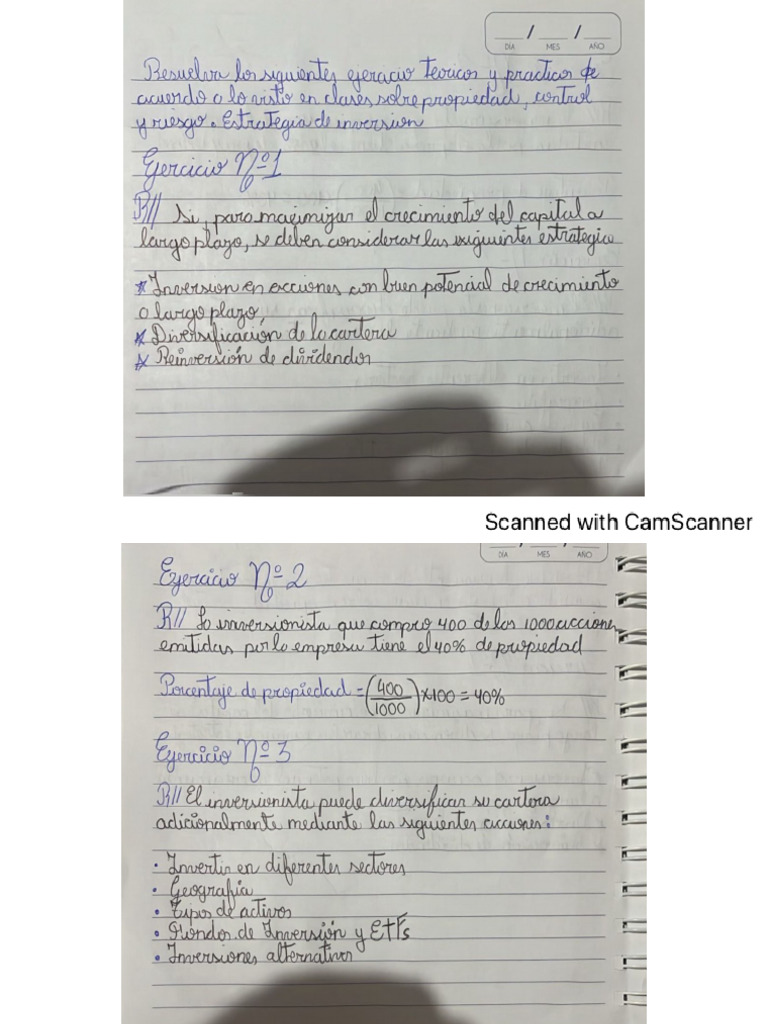 DÍA MES AÑO
Resuelva los siguientes ejercicio teoricos y practicos de
acuerdo a lo visto en clases sobre propiedad, control
y riesgo. Estrategia de inversion
Ejercicio Nº1
R// Si, para maximizar el crecimiento del capital a
largo plazo, se deben considerar las siguientes estrategica
* Inversion en acciones con buen potencial de crecimiento
a largo plazo,
* Diversificación de la cartera
* Reinversión de dividendos
Scanned with CamScanner
DÍA MES AÑO
Ejercicio Nº2
R// La inversionista que compro 400 de las 1000 acciones
emitidas por la empresa tiene el 40% de propiedad
Porcentaje de propiedad = (400/1000) x100 = 40%
Ejercicio Nº3
R// El inversionista puede diversificar su cartera
adicionalmente mediante las siguientes acciones:
• Invertir en diferentes sectores
• Geografia
• Tipos de activos
• Fondos de Inversión y ETFs
• Inversiones alternativas